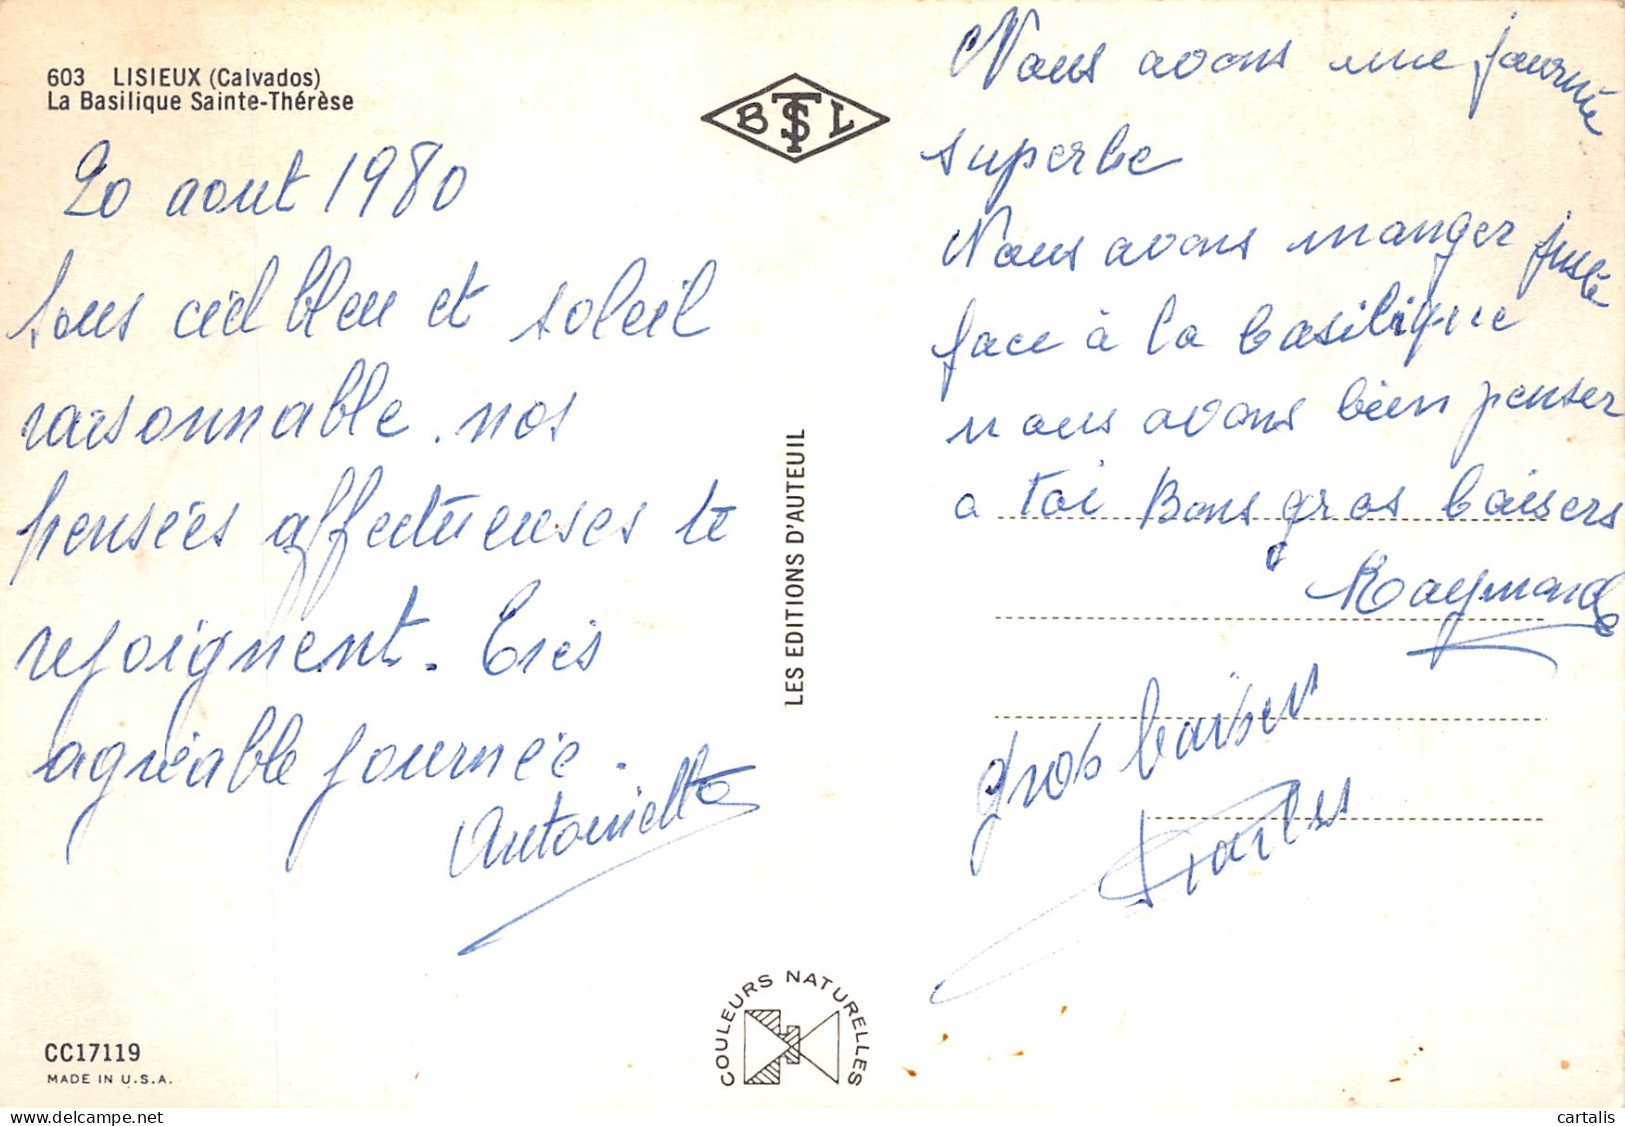 603 LISIEUX (Calvados)
La Basilique Sainte-Thérèse
20 aout 1980
Sous ciel bleu et soleil
raisonnable. nos
pensées affectueuses te
rejoignent. Très
agréable journée.
Antoinette
CC17119
MADE IN U.S.A.
BTSL
LES EDITIONS D'AUTEUIL
COULEURS NATURELLES
Nous avons une journée
superbe
Nous avons manger juste
face à la basilique
nous avons bien penser
a toi Bons gros baisers
Raymonde
gros baisers
Charles
cartalis